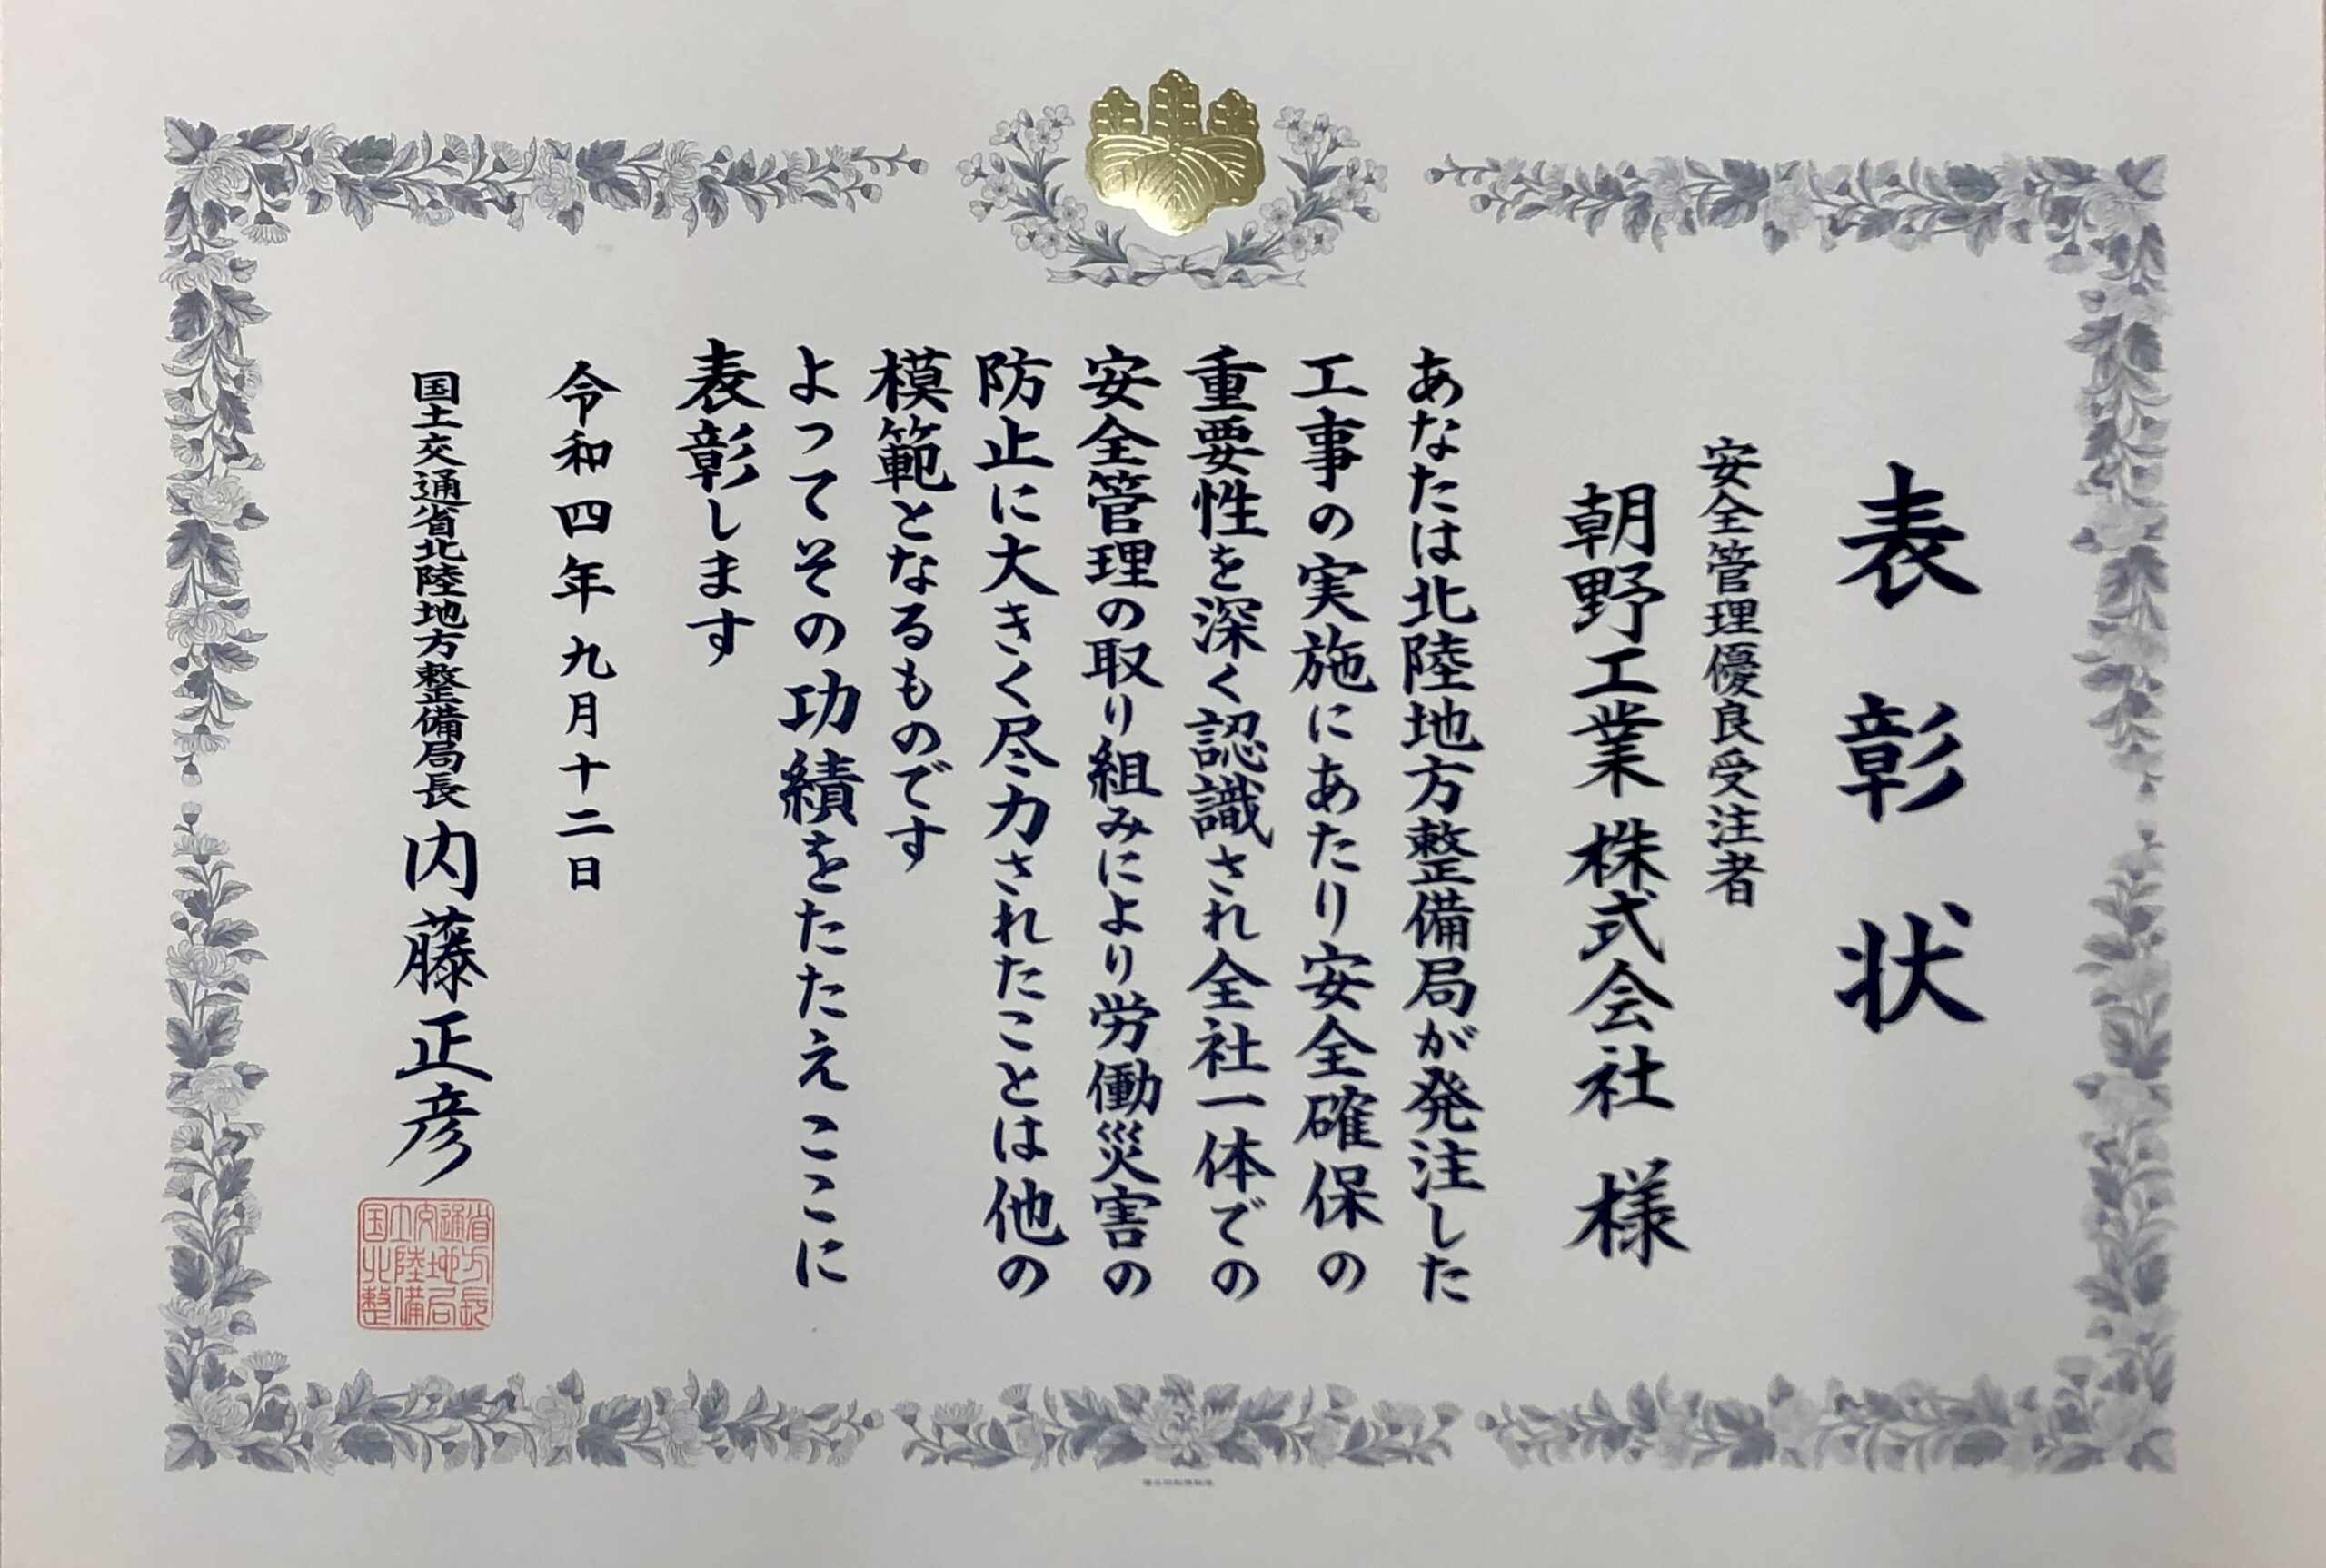 表彰状
安全管理優良受注者
朝野工業株式会社 様
あなたは北陸地方整備局が発注した
工事の実施にあたり安全確保の
重要性を深く認識され全社一体での
安全管理の取り組みにより労働災害の
防止に大きく尽力されたことは他の
模範となるものです
よってその功績をたたえここに
表彰します
令和四年九月十二日
国土交通省北陸地方整備局長 内藤正彦